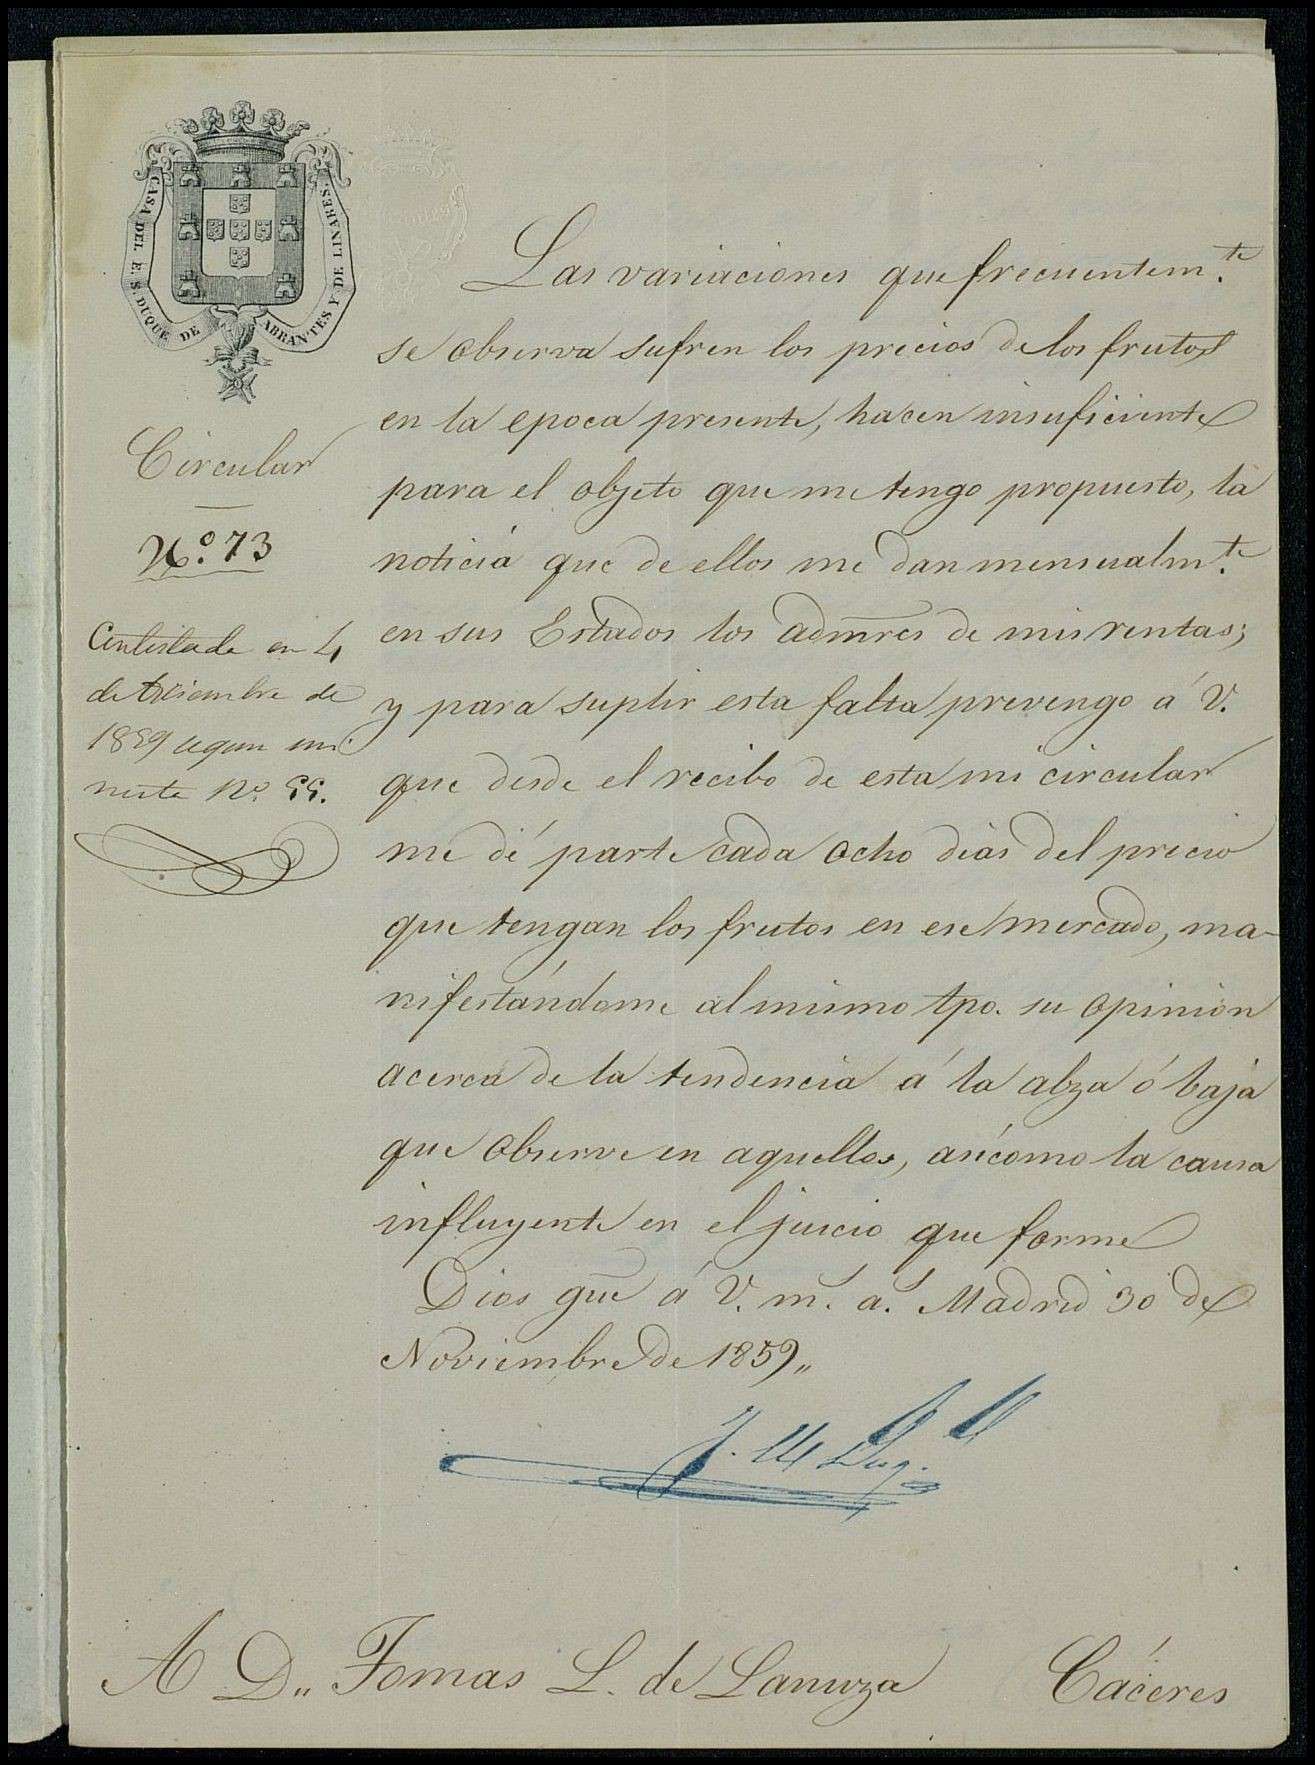 CASA DEL E. S. DUQUE DE ABRANTES Y DE LINARES.
Circular
N.º 73
Contestada en 4
de Diciembre de
1859 segun mi
nuta Nº. 55.
Las variaciones que frecuentem.te
se observa sufren los precios de los frutos
en la epoca presente, hacen insuficiente
para el objeto que me tengo propuesto, la
noticia que de ellos me dan mensualm.te
en sus Estados los admres de mis rentas;
y para suplir esta falta prevengo á V.
que desde el recibo de esta mi circular
me dé parte cada ocho dias del precio
que tengan los frutos en ese mercado, ma-
nifestándome al mismo tpo. su opinion
acerca de la tendencia á la alza ó baja
que observe en aquellos, asi como la causa
influyente en el juicio que forme
Dios gue á V. m.s a.s Madrid 30 de
Noviembre de 1859,,
A D,, Tomas L. de Lanuza Cáceres